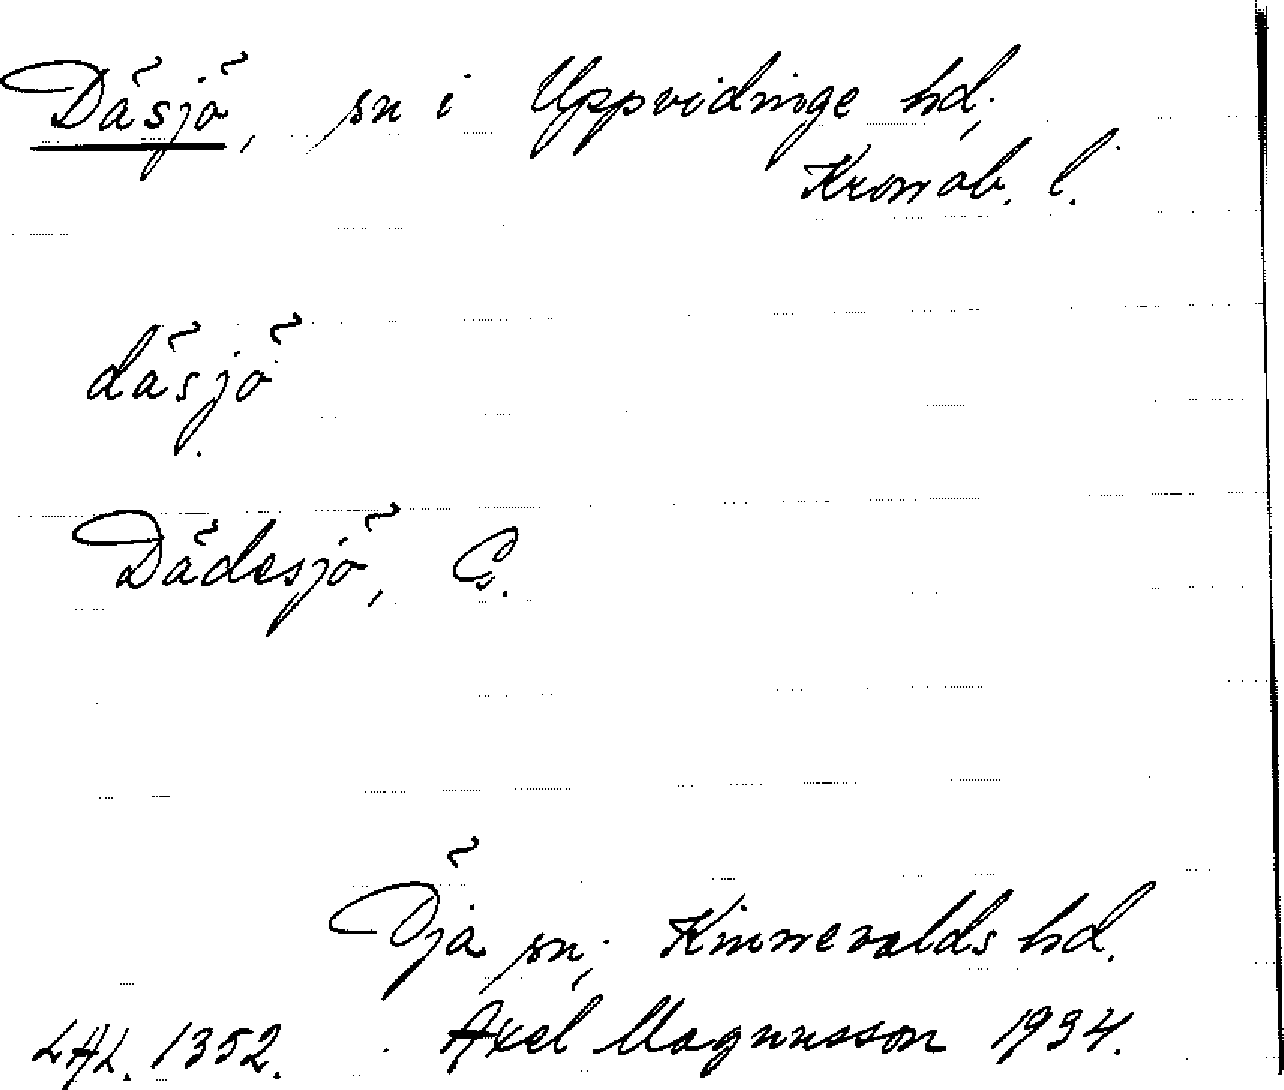 Däsjö, sn i Uppvidinge hd;
Kronob. l.
däsjö
Dädesjö, G.
Öja sn; Kinnevalds hd.
LAL. 1352. Axel Magnusson 1934.